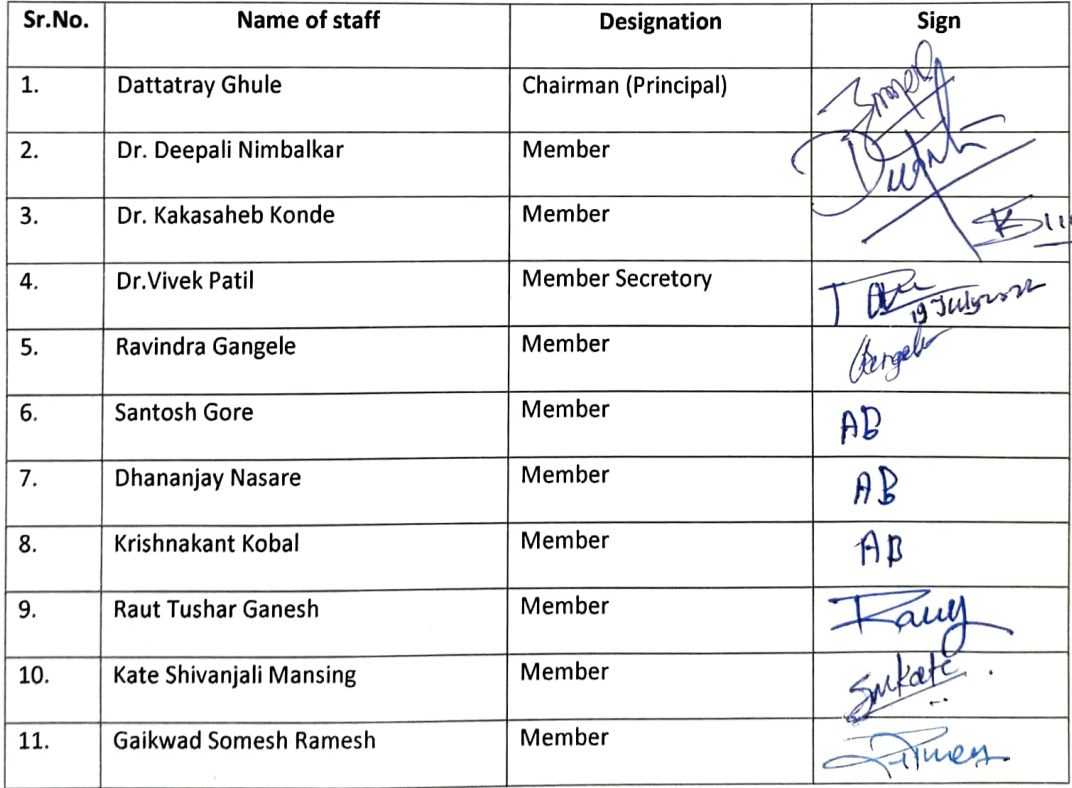 Sr.No. Name of staff Designation Sign
1. Dattatray Ghule Chairman (Principal)
2. Dr. Deepali Nimbalkar Member
3. Dr. Kakasaheb Konde Member
4. Dr.Vivek Patil Member Secretory
19 July 2022
5. Ravindra Gangele Member
6. Santosh Gore Member AB
7. Dhananjay Nasare Member AB
8. Krishnakant Kobal Member AB
9. Raut Tushar Ganesh Member
10. Kate Shivanjali Mansing Member Smkate
11. Gaikwad Somesh Ramesh Member